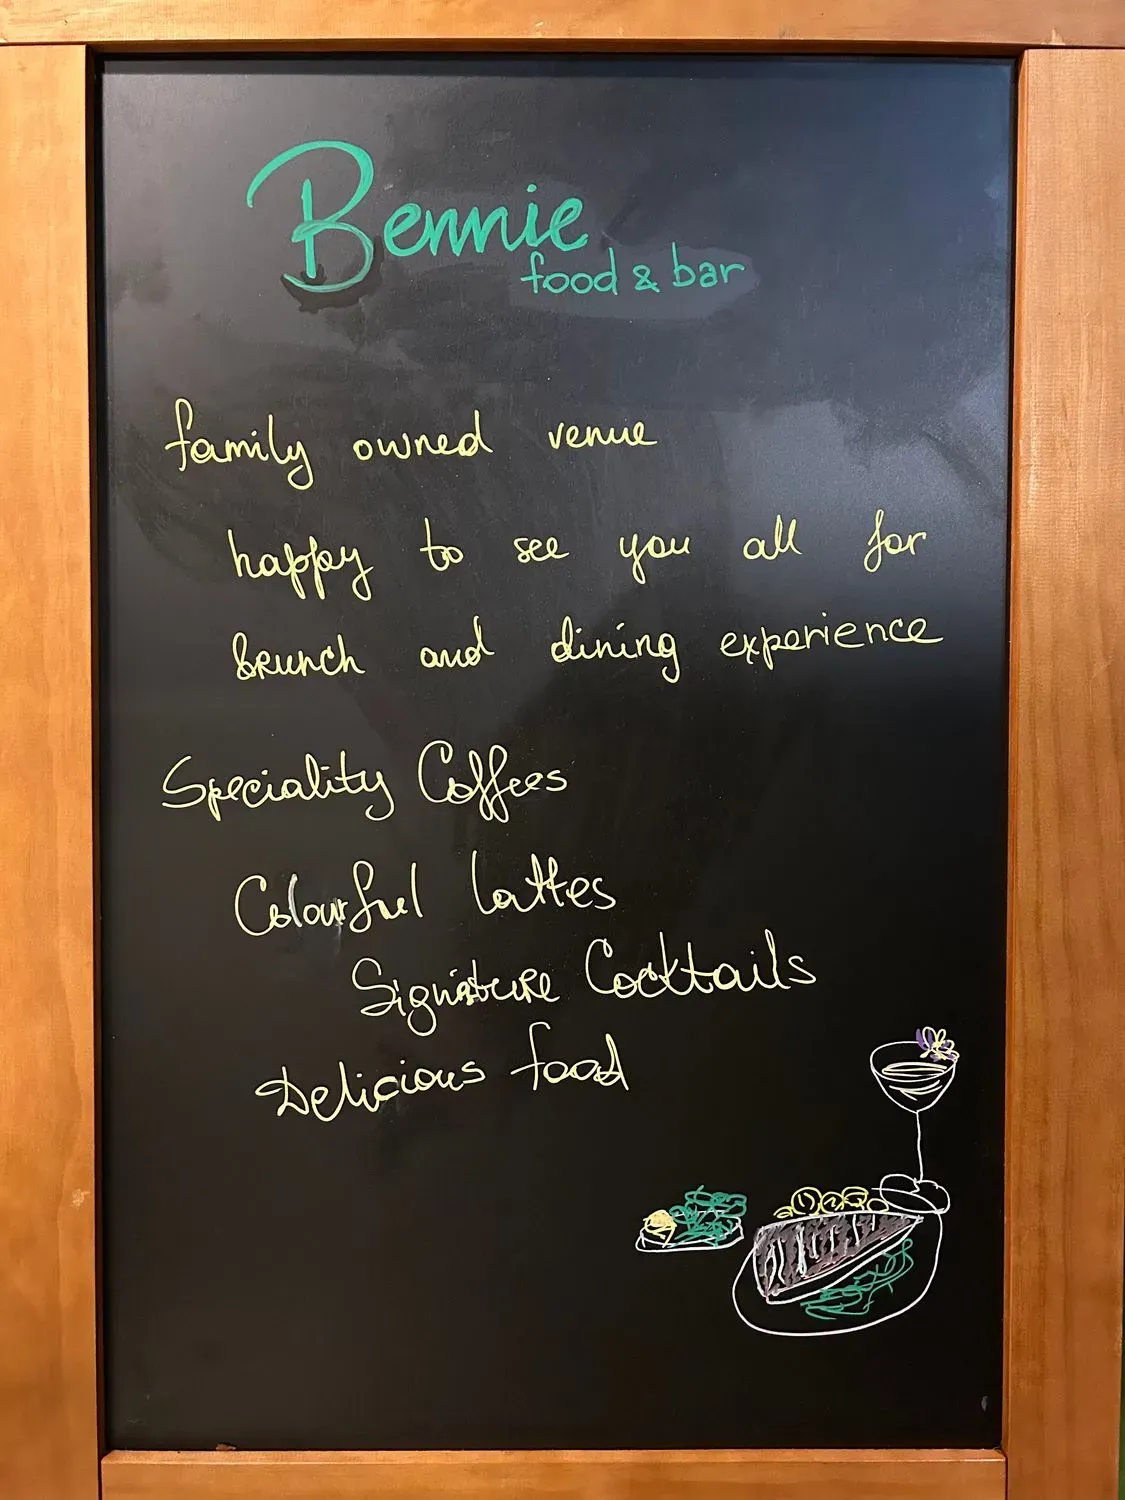 Bennie
food & bar
family owned venue
happy to see you all for
brunch and dining experience
Speciality Coffees
Colourful lattes
Signature Cocktails
Delicious food